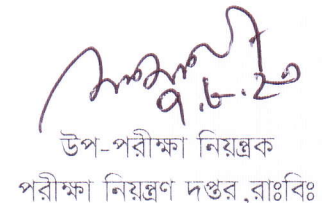 ৭.৮.২৩
উপ-পরীক্ষা নিয়ন্ত্রক
পরীক্ষা নিয়ন্ত্রণ দপ্তর,রাঃবিঃ